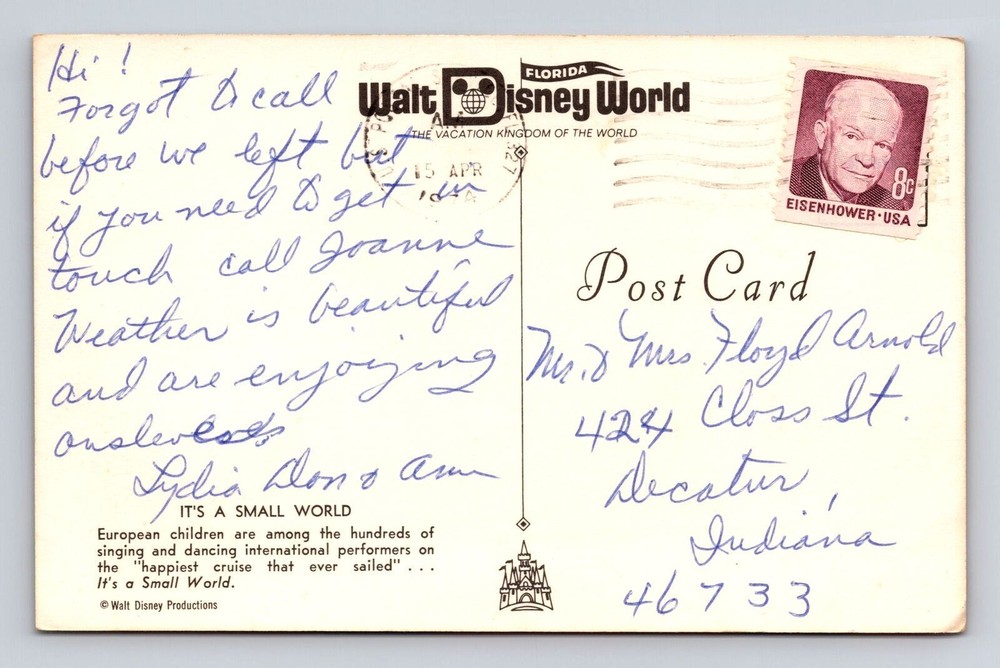 Hi!
Forgot to call
before we left but
if you need to get in
touch call Joanne
Weather is beautiful
and are enjoying
Lydia Don & Ann
IT'S A SMALL WORLD
European children are among the hundreds of
singing and dancing international performers on
the "happiest cruise that ever sailed" . . .
It's a Small World.
© Walt Disney Productions
FLORIDA
Walt Disney World
THE VACATION KINGDOM OF THE WORLD
AM
15 APR
8c
EISENHOWER·USA
Post Card
Mr. & Mrs. Floyd Arnold
424 Closs St.
Decatur,
Indiana
46733